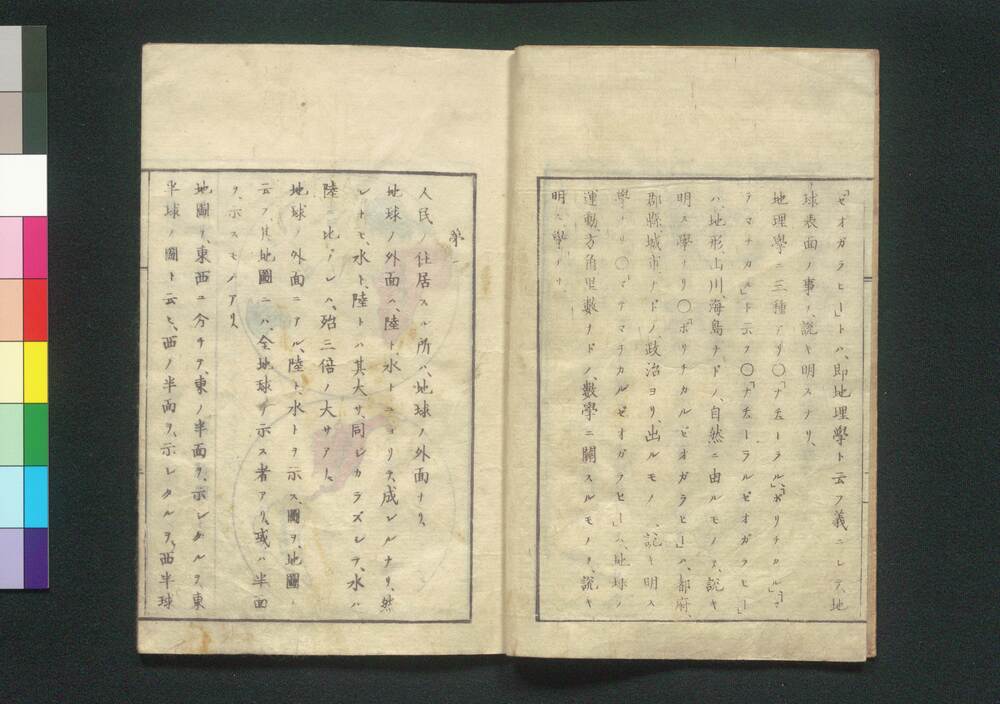 「ゼオガラヒー」トハ、即地理學ト云フ義ニシテ、地
球表面ノ事ヲ、説キ明スナリ、
地理學ニ三種アリ〇「ナチューラル」、「ポリチカル」、「マ
テマチカル」ト云フ〇「ナチューラルゼオガラヒー」
ハ、地形山川、海島ナドノ、自然ニ由ルモノヲ、説キ
明ス學ナリ〇「ポリチカルゼオガラヒー」ハ、都府、
郡縣城市、ナドノ、政治ヨリ、出ルモノヲ、説キ明ス
學ナリ〇「マテマチカルゼオガラヒー」ハ、地球ノ
運動方角里數ナドノ、數學ニ關スルモノヲ、説キ
明ス學ナリ
第一
人民ノ住居スル所ハ、地球ノ外面ナリ、
地球ノ外面ハ、陸ト、水トニヨリテ、成レルナリ、然
レトモ、水ト、陸トハ其大サ、同シカラズシテ、水ハ
陸ニ比スレハ、殆三倍ノ大サアリ、
地球ノ外面ニアル、陸ト、水トヲ示ス圖ヲ、地圖ト
云フ、其地圖ニハ、全地球ヲ示ス者アリ、或ハ半面
ヲ、示スモノアリ、
地圖ヲ、東西ニ分チテ、東ノ半面ヲ、示シタルヲ、東
半球ノ圖ト云ヒ、西ノ半面ヲ、示シタルヲ、西半球